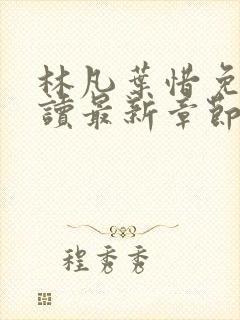 林凡葉惜免
讀最新章節
程秀秀